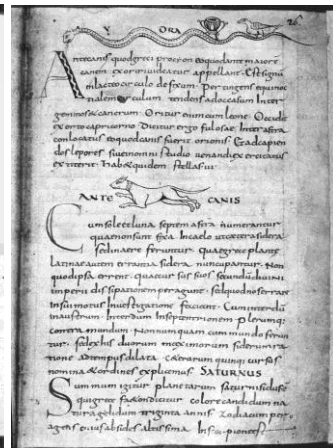 Y ORA
26
Antecanis quod greci procyon eo quod ante maiore
canem exoriri videatur appellant. Est signũ
in lacteo circulo defixum. Pertingens equinoc
tialem circulum tendens ad occasum Inter
geminos & cancrum. Oritur cum leone. Occidit
exorto capricorno Dicitur ergo Inter astra
conlocatus eo quod canis fuerit orionis & ad capien
dos lepores sui domini studio venandi exercitatus
extiterit. Hab& quidem stellas III
ANTE CANIS
Cum sole et luna septem astra numerantur
quae non sunt fixa In caelo ut cetera sidera
sed manere feruntur quae greci plane
Latinae autem errantia sidera nuncupantur. Non
quod ipsa errent. quae cursus suos secundũ divini
imperii dispositionem peragunt. sed quod nos errare
In sui motus Investigatione faciant. Cum interdũ
In austrum. Interdum In septentrionem. Plerumq;
contra mundum. Nonnumquam cum mundo ferun
tur. sed ex his duorum maximorum siderum
ratione ad tempus dilata. ceterarum quinq; cursus
nomina & ordines explicemus SATURNUS
Summum igitur planetarum Saturni sidus
quod greci dicitur colore candidum na
tura gelidum triginta annis Zodiacum per
agens cuius absides altissima In scorpione